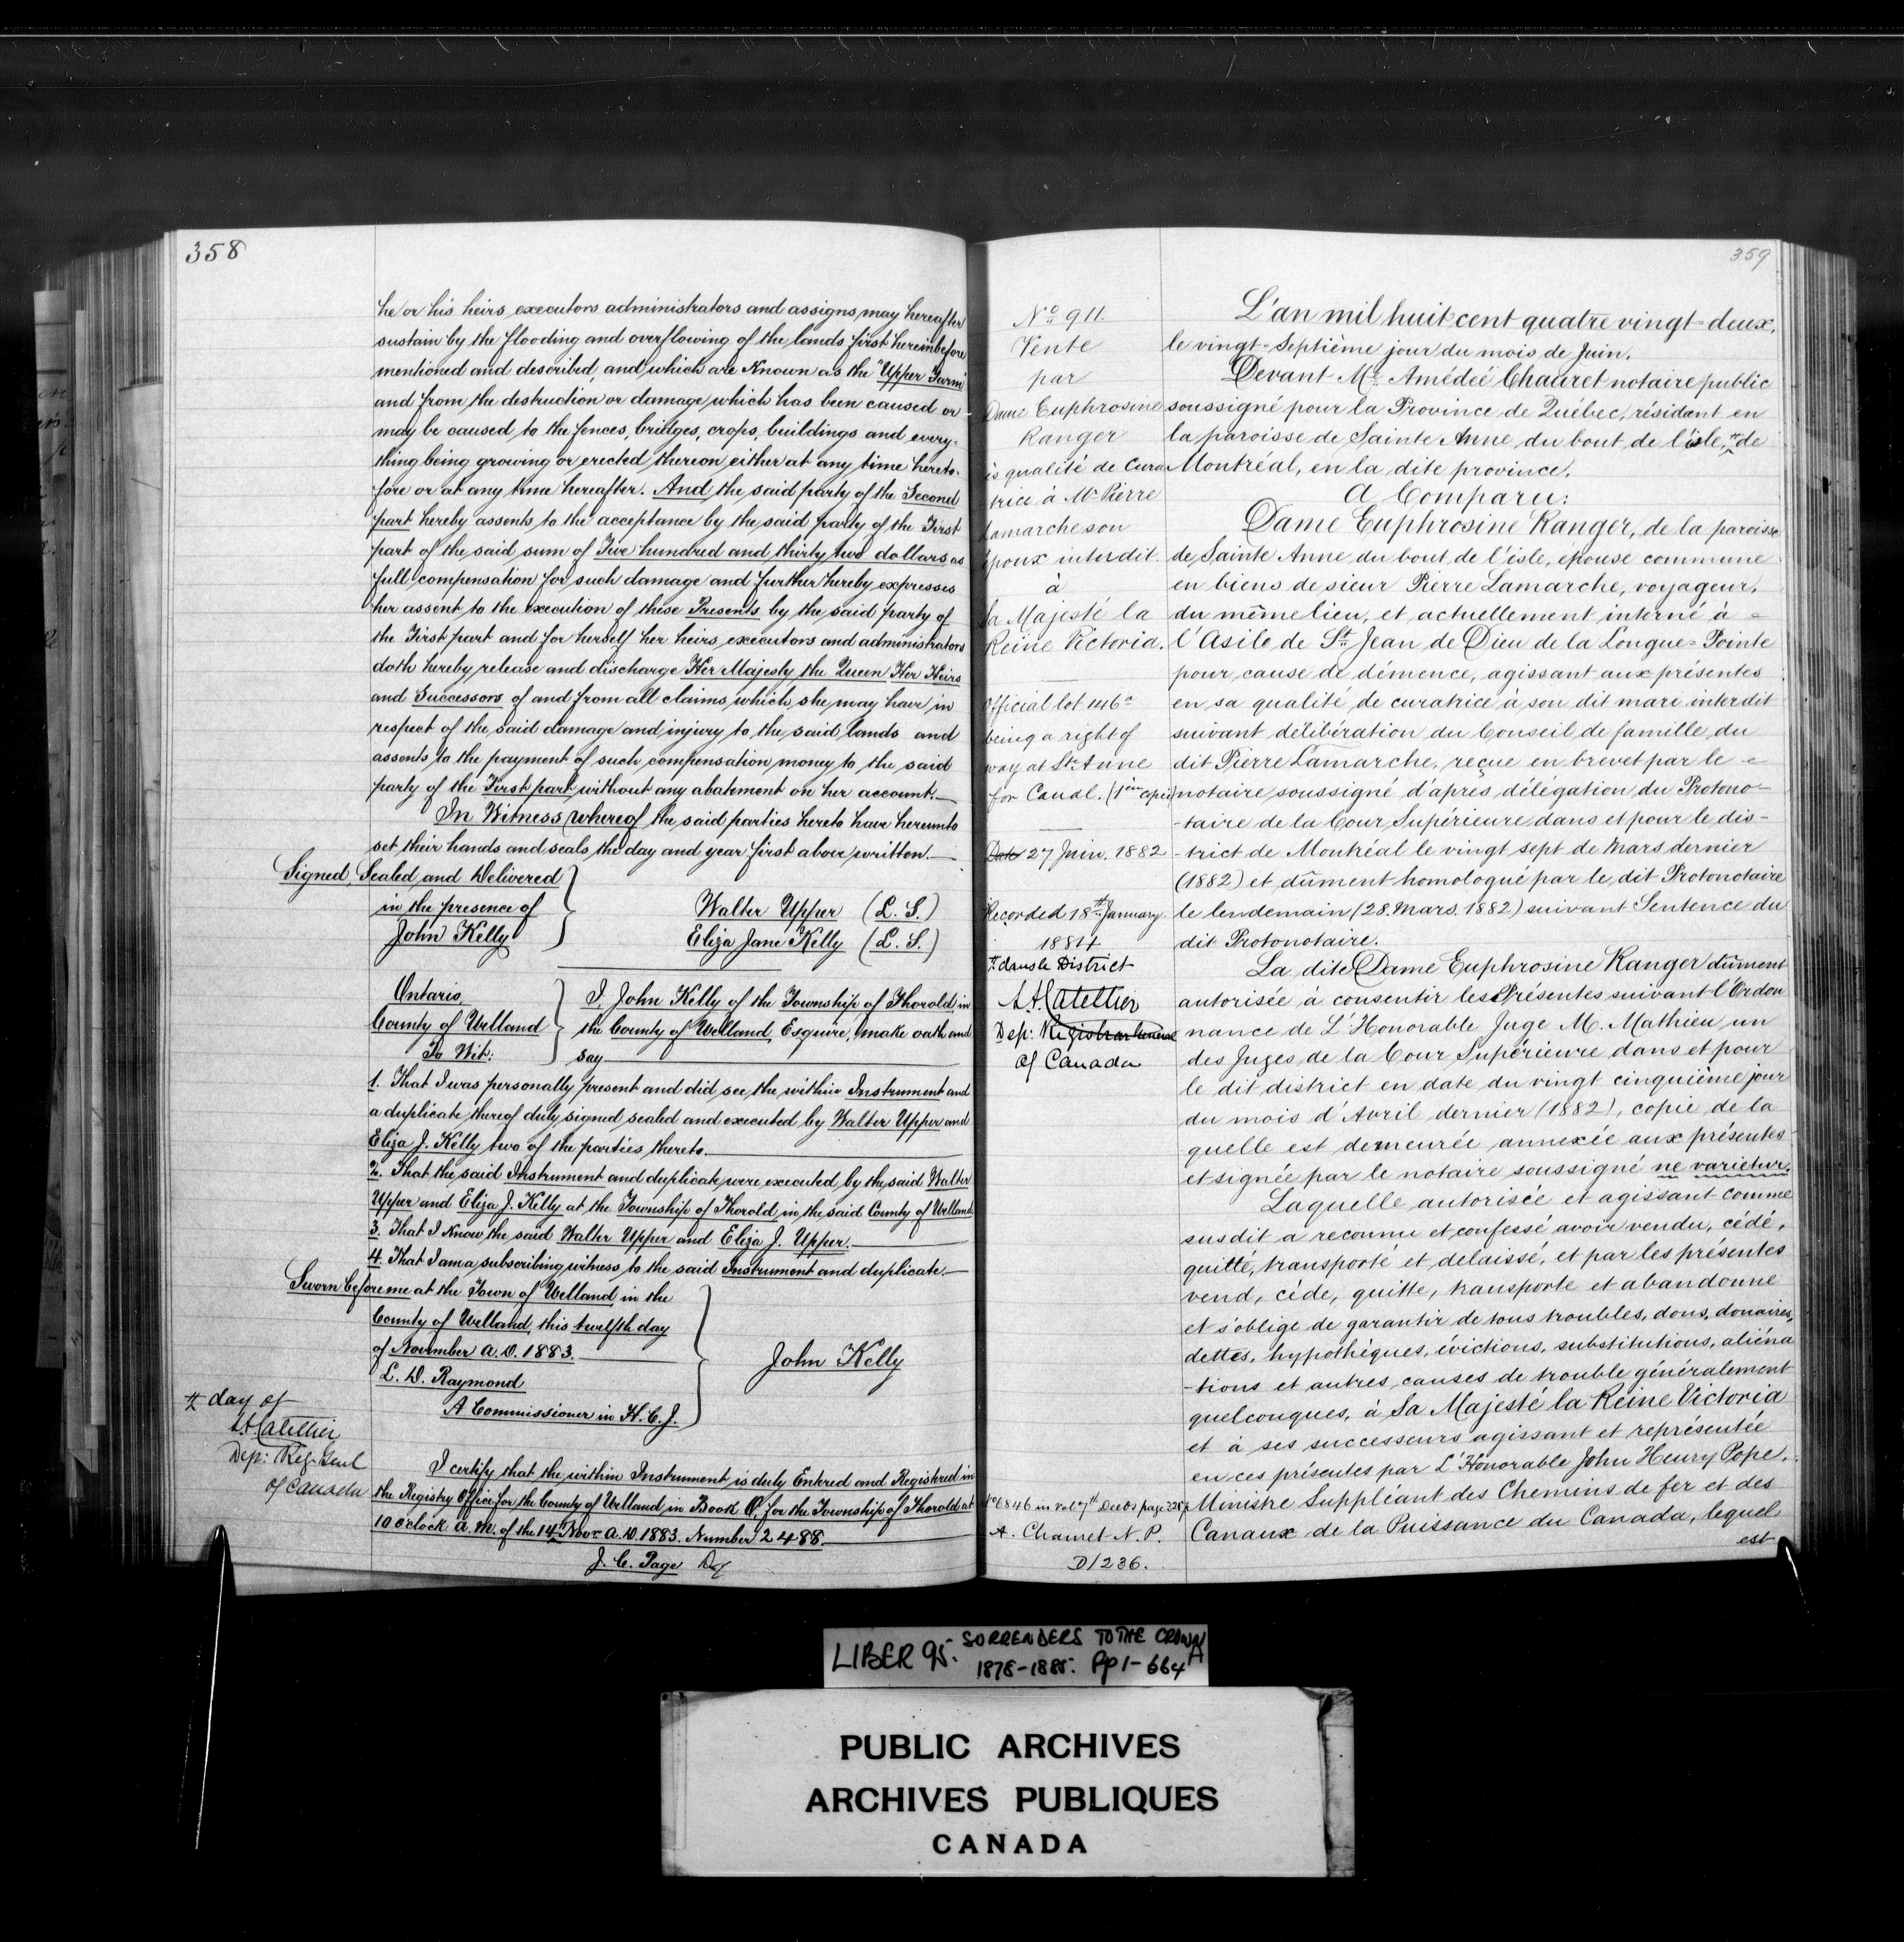 358
he or his heirs executors administrators and assigns may hereafter
sustain by the flooding and overflowing of the lands first hereinbefore
mentioned and described, and which are Known as the "Upper Farm"
and from the destruction or damage which has been caused or
may be caused to the fences, bridges, crops, buildings and every-
thing being growing or erected thereon either at any time hereto-
fore or at any time hereafter. And the said party of the Second
part hereby assents to the acceptance by the said party of the First
part of the said sum of Five hundred and thirty two dollars as
full compensation for such damage and further hereby expresses
her assent to the execution of these Presents by the said party of
the First part and for herself her heirs, executors and administrators
doth hereby release and discharge Her Majesty the Queen Her Heirs
and Successors of and from all claims which she may have in
respect of the said damage and injury to the said lands and
assents to the payment of such compensation money to the said
party of the First part without any abatement on her account.
In Witness whereof the said parties hereto have hereunto
set their hands and seals the day and year first above written.
Signed, Sealed and Delivered
in the presence of
John Kelly
Walter Upper (L. S.)
Eliza Jane Kelly (L. S.)
Ontario,
County of Welland
To Wit:
I, John Kelly of the Township of Thorold in
the County of Welland, Esquire, make oath and
say
1. That I was personally present and did see the within Instrument and
a duplicate thereof duly signed sealed and executed by Walter Upper and
Eliza J. Kelly two of the parties thereto.
2. That the said Instrument and duplicate were executed by the said Walter
Upper and Eliza J. Kelly at the Township of Thorold, in the said County of Welland.
3. That I Know the said Walter Upper and Eliza J. Upper.
4. That I am a subscribing witness to the said Instrument and duplicate.
Sworn before me at the Town of Welland in the
County of Welland, this twelfth day
of November A.D. 1883.
L. D. Raymond
A Commissioner in H. C. J.
John Kelly
day of
Dep: Reg. Genl
of Canada
I certify that the within Instrument is duly Entered and Registered in
the Registry Office for the County of Welland in Book O, for the Township of Thorold at
10 o'clock A. M. of the 14th Novr A.D. 1883. Number 2488.
J. C. Page
359
No 911.
Vente
par
Dame Euphrosine
Ranger
ès qualité de Cura
trice à Mr Pierre
Lamarche son
époux interdit.
à
Sa Majesté la
Reine Victoria.
Official lot 146a
being a right of
way at Ste Anne
for Canal. (1ère copie)
Date 27 Juin. 1882
Recorded 18th January.
1884
dans le District
Dep: Registrar General
of Canada
No 6846 in Vol 7th Deeds page
A. Chauret N. P.
D1236.
L'an mil huit cent quatre vingt-deux,
le vingt-Septième jour du mois de Juin.
Devant Mre Amédée Chauret notaire public
soussigné pour la Province de Québec, résidant en
la paroisse de Sainte Anne du bout de l'isle, de
Montréal, en la dite province.
A Comparu:
Dame Euphrosine Ranger, de la paroisse
de Sainte Anne du bout de l'isle, épouse commune
en biens de sieur Pierre Lamarche, voyageur,
du même lieu, et actuellement interné à =
l'Asile de St. Jean de Dieu de la Longue-Pointe
pour cause de démence, agissant aux présentes
en sa qualité de curatrice à son dit mari interdit
suivant délibération du Conseil de famille du
dit Pierre Lamarche, reçue en brevet par le =
notaire soussigné d'après délégation du Protono-
-taire de la Cour Supérieure dans et pour le dis-
-trict de Montréal le vingt sept de Mars dernier
(1882) et dûment homologué par le dit Protonotaire
le lendemain (28. Mars. 1882) suivant Sentence du
dit Protonotaire.
La dite Dame Euphrosine Ranger dûment
autorisée à consentir les Présentes suivant l'Ordon
nance de L'Honorable Juge M. Mathieu, un
des Juges de la Cour Supérieure dans et pour
le dit district en date du vingt cinquième jour
du mois d'Avril dernier (1882), copie de la
quelle est demeurée annexée aux présentes
et signée par le notaire soussigné ne varietur.
Laquelle autorisée et agissant comme
susdit a reconnu et confessé avoir vendu, cédé,
quitté, transporté et delaissé, et par les présentes
vend, cède, quitte, transporte et abandonne
et s'oblige de garantir de tous troubles, dons, douaires,
dettes, hypothèques, évictions, substitutions, aliéna
-tions et autres causes de trouble généralement
quelconques, à Sa Majesté la Reine Victoria
et à ses successeurs agissant et représentée
en ces présentes par L'Honorable John Henry Pope,
Ministre Suppléant des Chemins de fer et des
Canaux de la Puissance du Canada, lequel
est
LIBER 95. SORRENDERS TO THE CROWN
1878-1885. Pp 1-664 A
PUBLIC ARCHIVES
ARCHIVES PUBLIQUES
CANADA